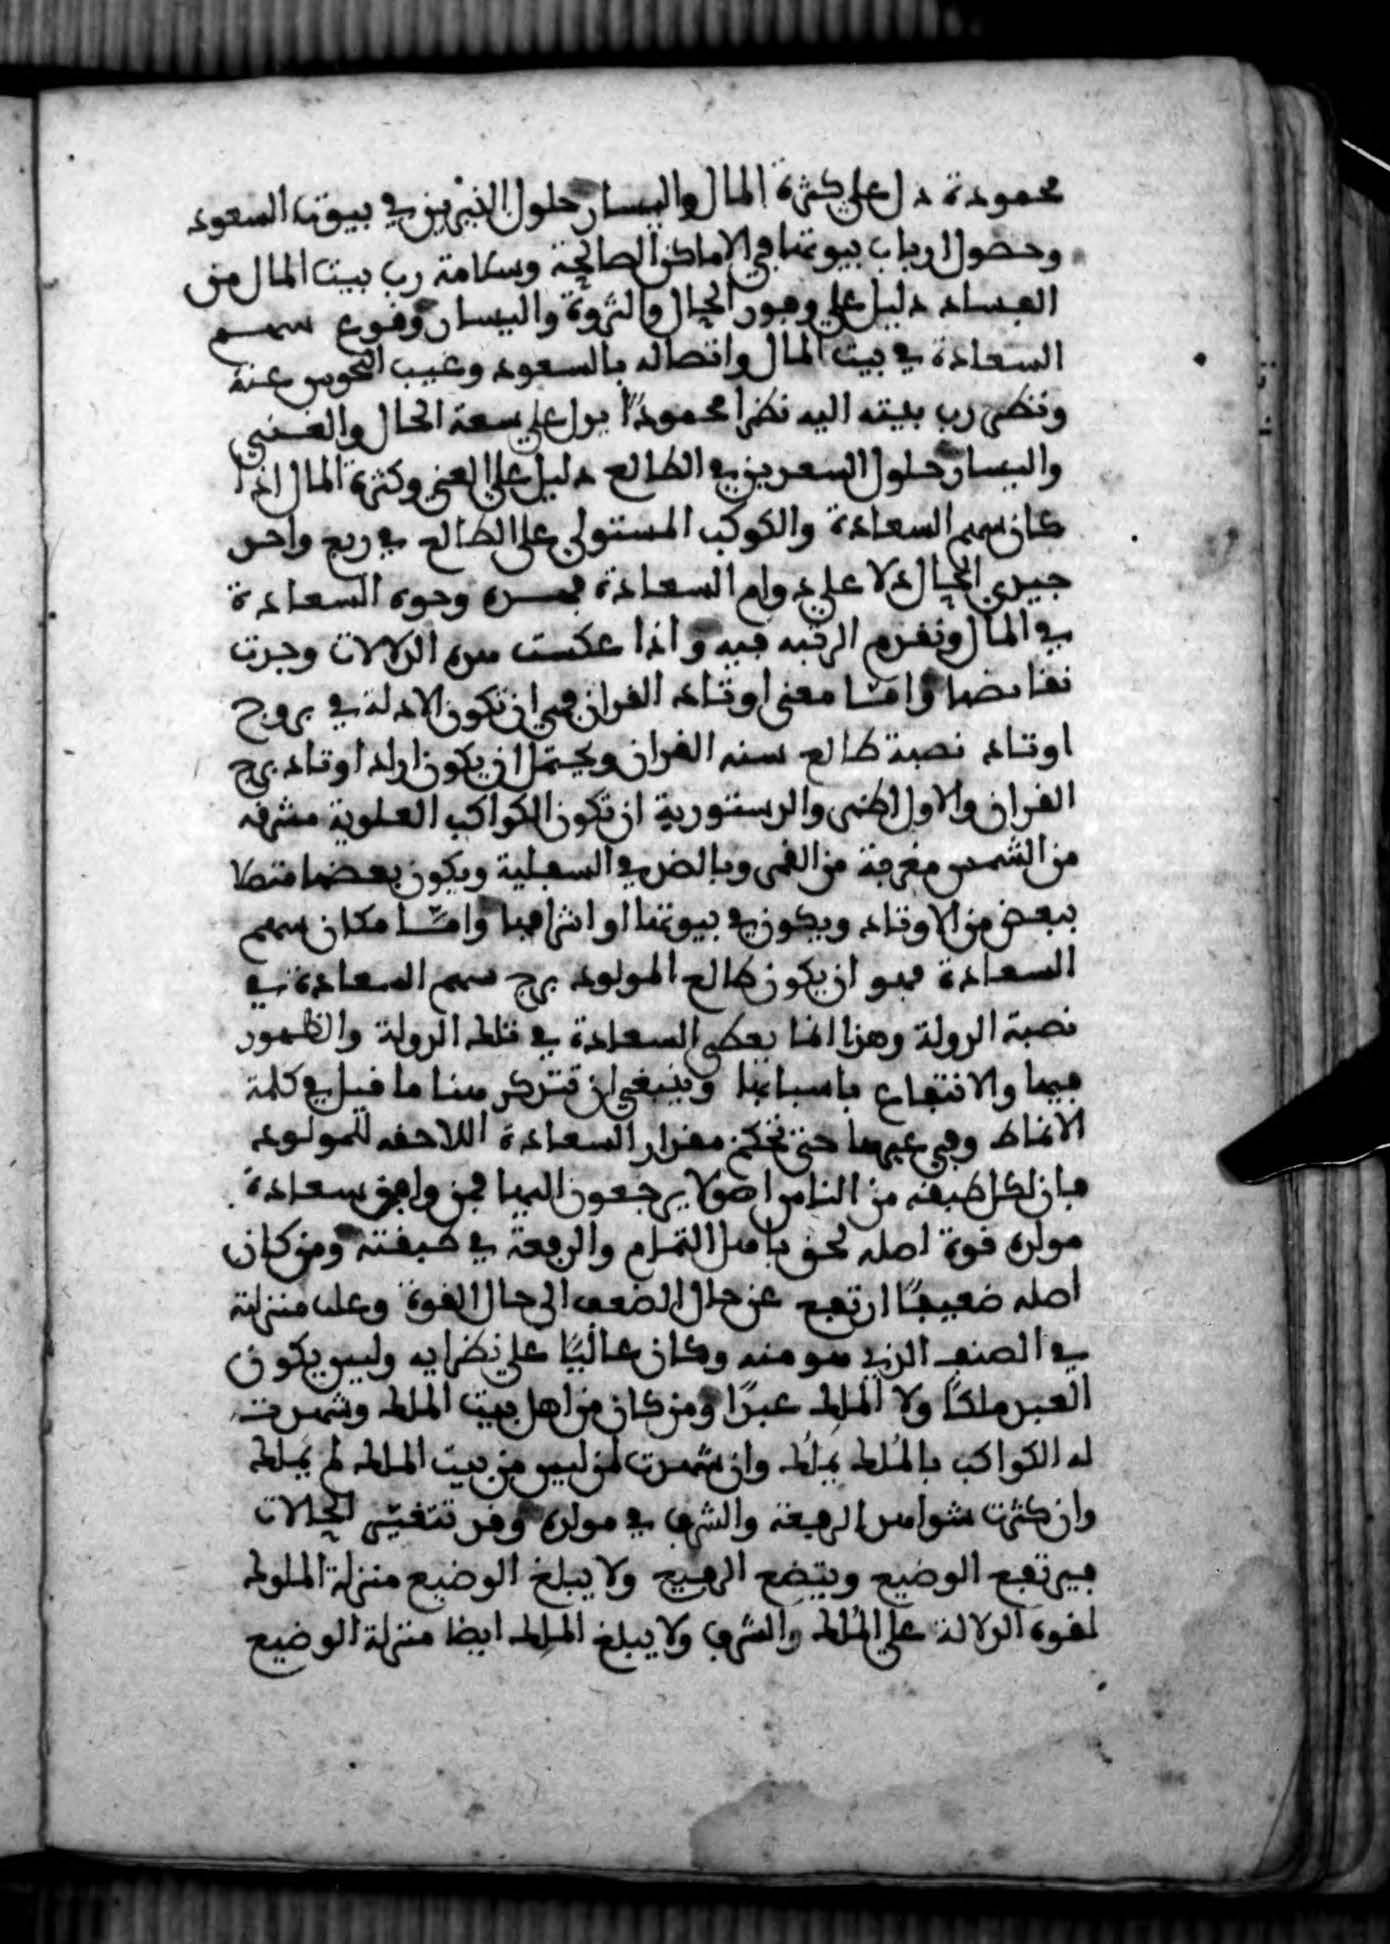 محمودة دل على كثرة المال واليسار حلول النيرين في بيوت السعود
وحصول ارباب بيوتها في الاماكن الصالحة وسلامة رب بيت المال من
الفساد دليل على وفور الحال والثروة واليسار وقوع سهم
السعادة في بيت المال واتصاله بالسعود وغيب النحوس عنه
ونظر رب بيته اليه نظرا محمودًا يدل على سعة الحال والغنى
واليسار حلول السعدين في الطالع دليل على الغنى وكثرة المال اذا
كان سهم السعادة والكوكب المستولي على الطالع في ربع واحد
جيدي الحال دلا على دوام السعادة فهذه وجوه السعادة
في المال وتقدم الرتبه فيه واذا عكست هذه الدلالات وجدت
نقائضها وامّا معنى اوتاد القران فهي ان تكون الادلة في بروج
اوتاد نصبة طالع سنه القران ويحتمل ان يكون اراد اوتاد برج
القران والاول اظهر والدستورية ان تكون الكواكب العلوية مشرفه
من الشمس مغربة من القمر وبالضد في السفلية ويكون بعضها متصلا
ببعض من الاوتاد ويكون في بيوتها او اشرافها وامّا مكان سهم
السعادة فهو ان يكون طالع المولود برج سهم السعادة في
نصبة الدولة وهذا انما يعطى السعادة في تلك الدولة والظهور
فيها والانتفاع باسبابها وينبغي ان تتذكر هنا ما قيل في كلمة
الانماط وفي غيرها حتى تحكم مقدار السعادة اللاحقه للمولود
فان لكل طبقه من الناس اصولا يرجعون اليها فمن وافق سعادة
مولده قوة اصله لحق باهل التمام والرفعة في طبقته ومن كان
اصله ضعيفًا ارتفع عن حال الضعف الى حال القوة وعلت منزلته
في الصنف الذي هو منه وكان عاليًا على نظرايه وليس يكون
العبد ملكًا ولا الملك عبدًا ومن كان من اهل بيت الملك وشهدت
له الكواكب بالمُلك يملك وان شهدت لمن ليس من بيت الملك لم يملك
وان كثرت شواهد الرفعة والشرف في مولده وقد تتغيّر الحالات
فيرتفع الوضيع ويتضع الرفيع ولا يبلغ الوضيع منزلة الملوك
لقوة الدلالة على المُلك والشرف ولا يبلغ الملك ايضا منزلة الوضيع